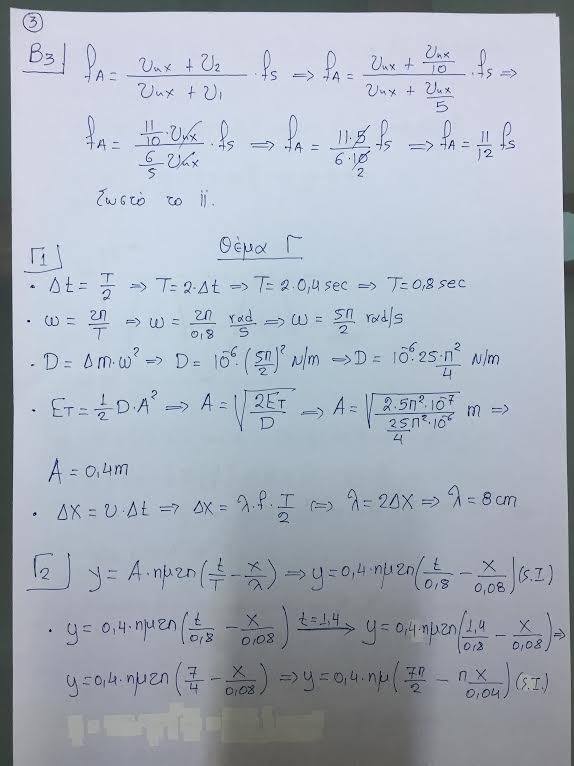 3
B3 | f_A = (υ_ηχ + υ_2)/(υ_ηχ + υ_1) · f_s ⇒ f_A = (υ_ηχ + υ_ηχ/10)/(υ_ηχ + υ_ηχ/5) · f_s ⇒
f_A = (11/10 · υ_ηχ)/(6/5 υ_ηχ) · f_s ⇒ f_A = (11·5)/(6·10 2) f_s ⇒ f_A = 11/12 f_s
Σωστό το ii.
Θέμα Γ
Γ1 |
· Δt = T/2 ⇒ T = 2·Δt ⇒ T = 2·0,4 sec ⇒ T = 0,8 sec
· ω = 2π/T ⇒ ω = 2π/0,8 rad/s ⇒ ω = 5π/2 rad/s
· D = Δm·ω² ⇒ D = 10⁻⁶·(5π/2)² N/m ⇒ D = 10⁻⁶·25·π²/4 N/m
· E_T = 1/2 D·A² ⇒ A = √(2E_T/D) ⇒ A = √((2·5π²·10⁻⁷)/(25π²·10⁻⁶/4)) m ⇒
A = 0,4m
· Δx = υ·Δt ⇒ Δx = λ·f·T/2 ⇒ λ = 2Δx ⇒ λ = 8cm
Γ2 | y = A·ημ2π(t/T − x/λ) ⇒ y = 0,4·ημ2π(t/0,8 − x/0,08) (S.I.)
· y = 0,4·ημ2π(t/0,8 − x/0,08) t=1,4 ⟶ y = 0,4·ημ2π(1,4/0,8 − x/0,08) ⇒
y = 0,4·ημ2π(7/4 − x/0,08) ⇒ y = 0,4·ημ(7π/2 − πx/0,04) (S.I.)